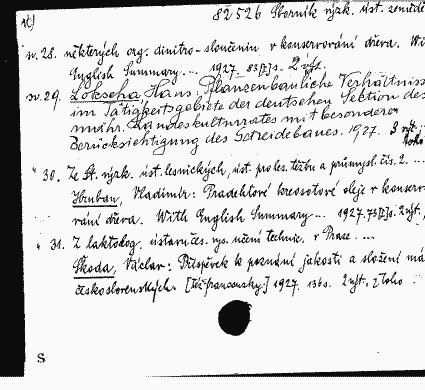 82526 Sborník výzk. úst. zeměděl
sv. 28. některých org. dinitro-sloučenin v konservování dřeva. Wi
English Summary... 1927. 83 [I] s. 2 výt.
sv. 29. Loksche Hans: Pflanzenbauliche Verhältniss
im Tätigkeitsgebiete der deutschen Sektion des
mähr. Landeskulturrates mit besonderer
Berücksichtigung des Getreidebaues. 1927. 3 výt.
" 30. Ze St. výzk. úst. lesnických, úst. pro les. těžbu a průmysl. čís. 2. ...
Hruban, Vladimír: Pradehtové kreosotové oleje v konserv
rání dřeva. With English Summary... 1927. 73 [I] s. 2 výt.,
" 31. Z laktolog. ústavu čes. vys. učení technic. v Praze. ...
Škoda, Václav: Příspěvek k poznání jakosti a složení má
československých. [též francouzsky:] 1927. 136 s. 2 výt. Z toho
S